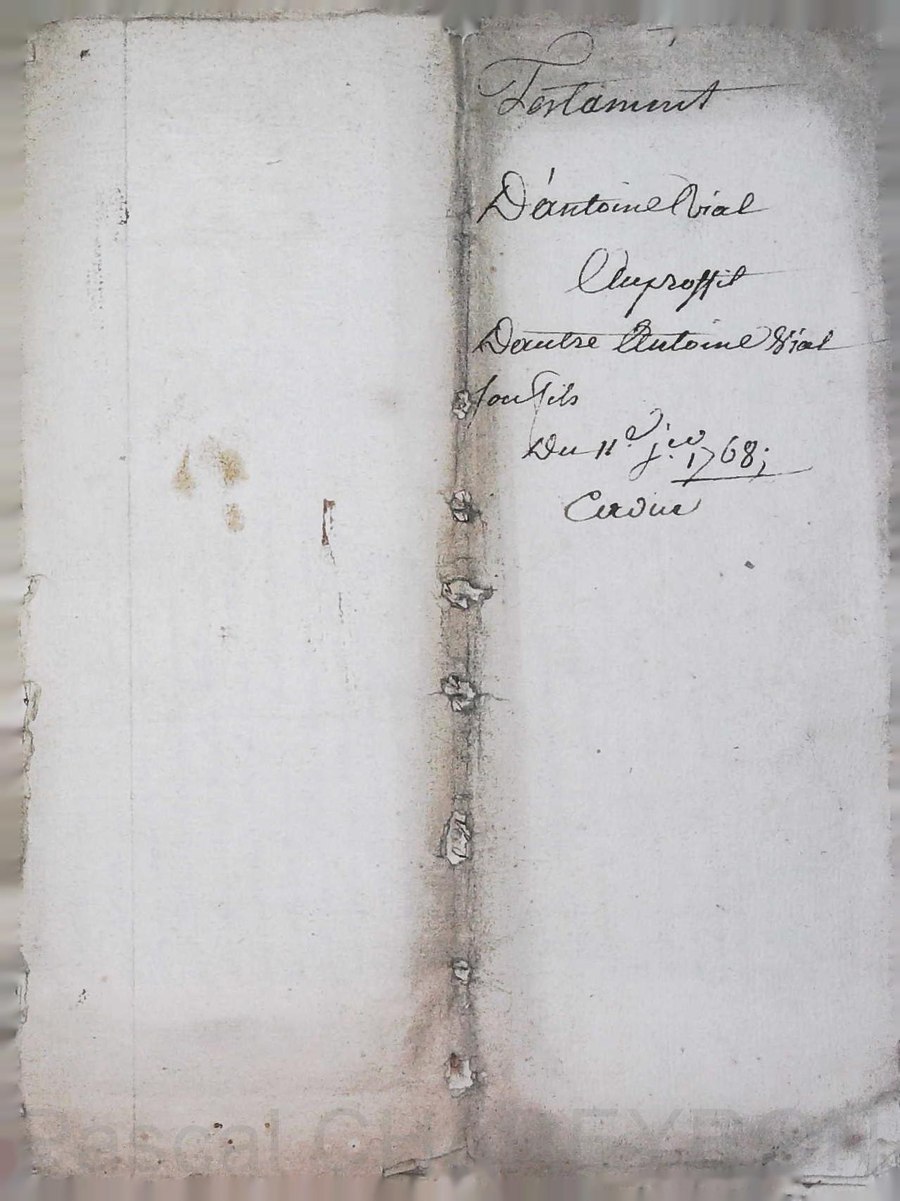 Testament
D'antoine Vial
Auproffit
Dautre Antoine Vial
son fils
Du 11e. j.er 1768;
Pascal